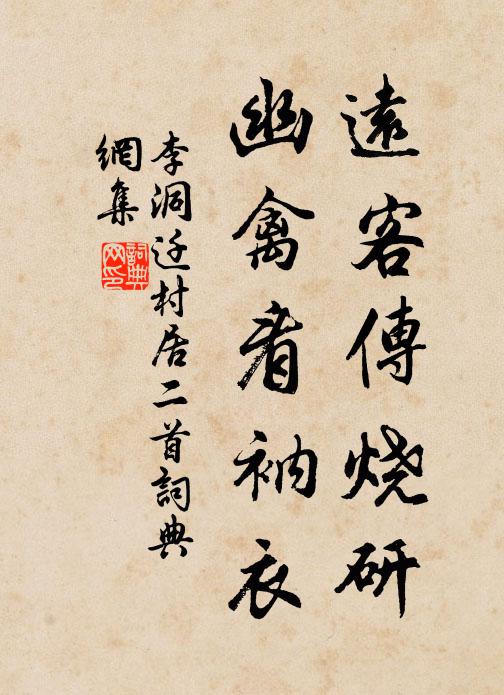 遠客傳烧研
幽禽看衲衣
李洞迁村居二首詞典
網集
詞典网印